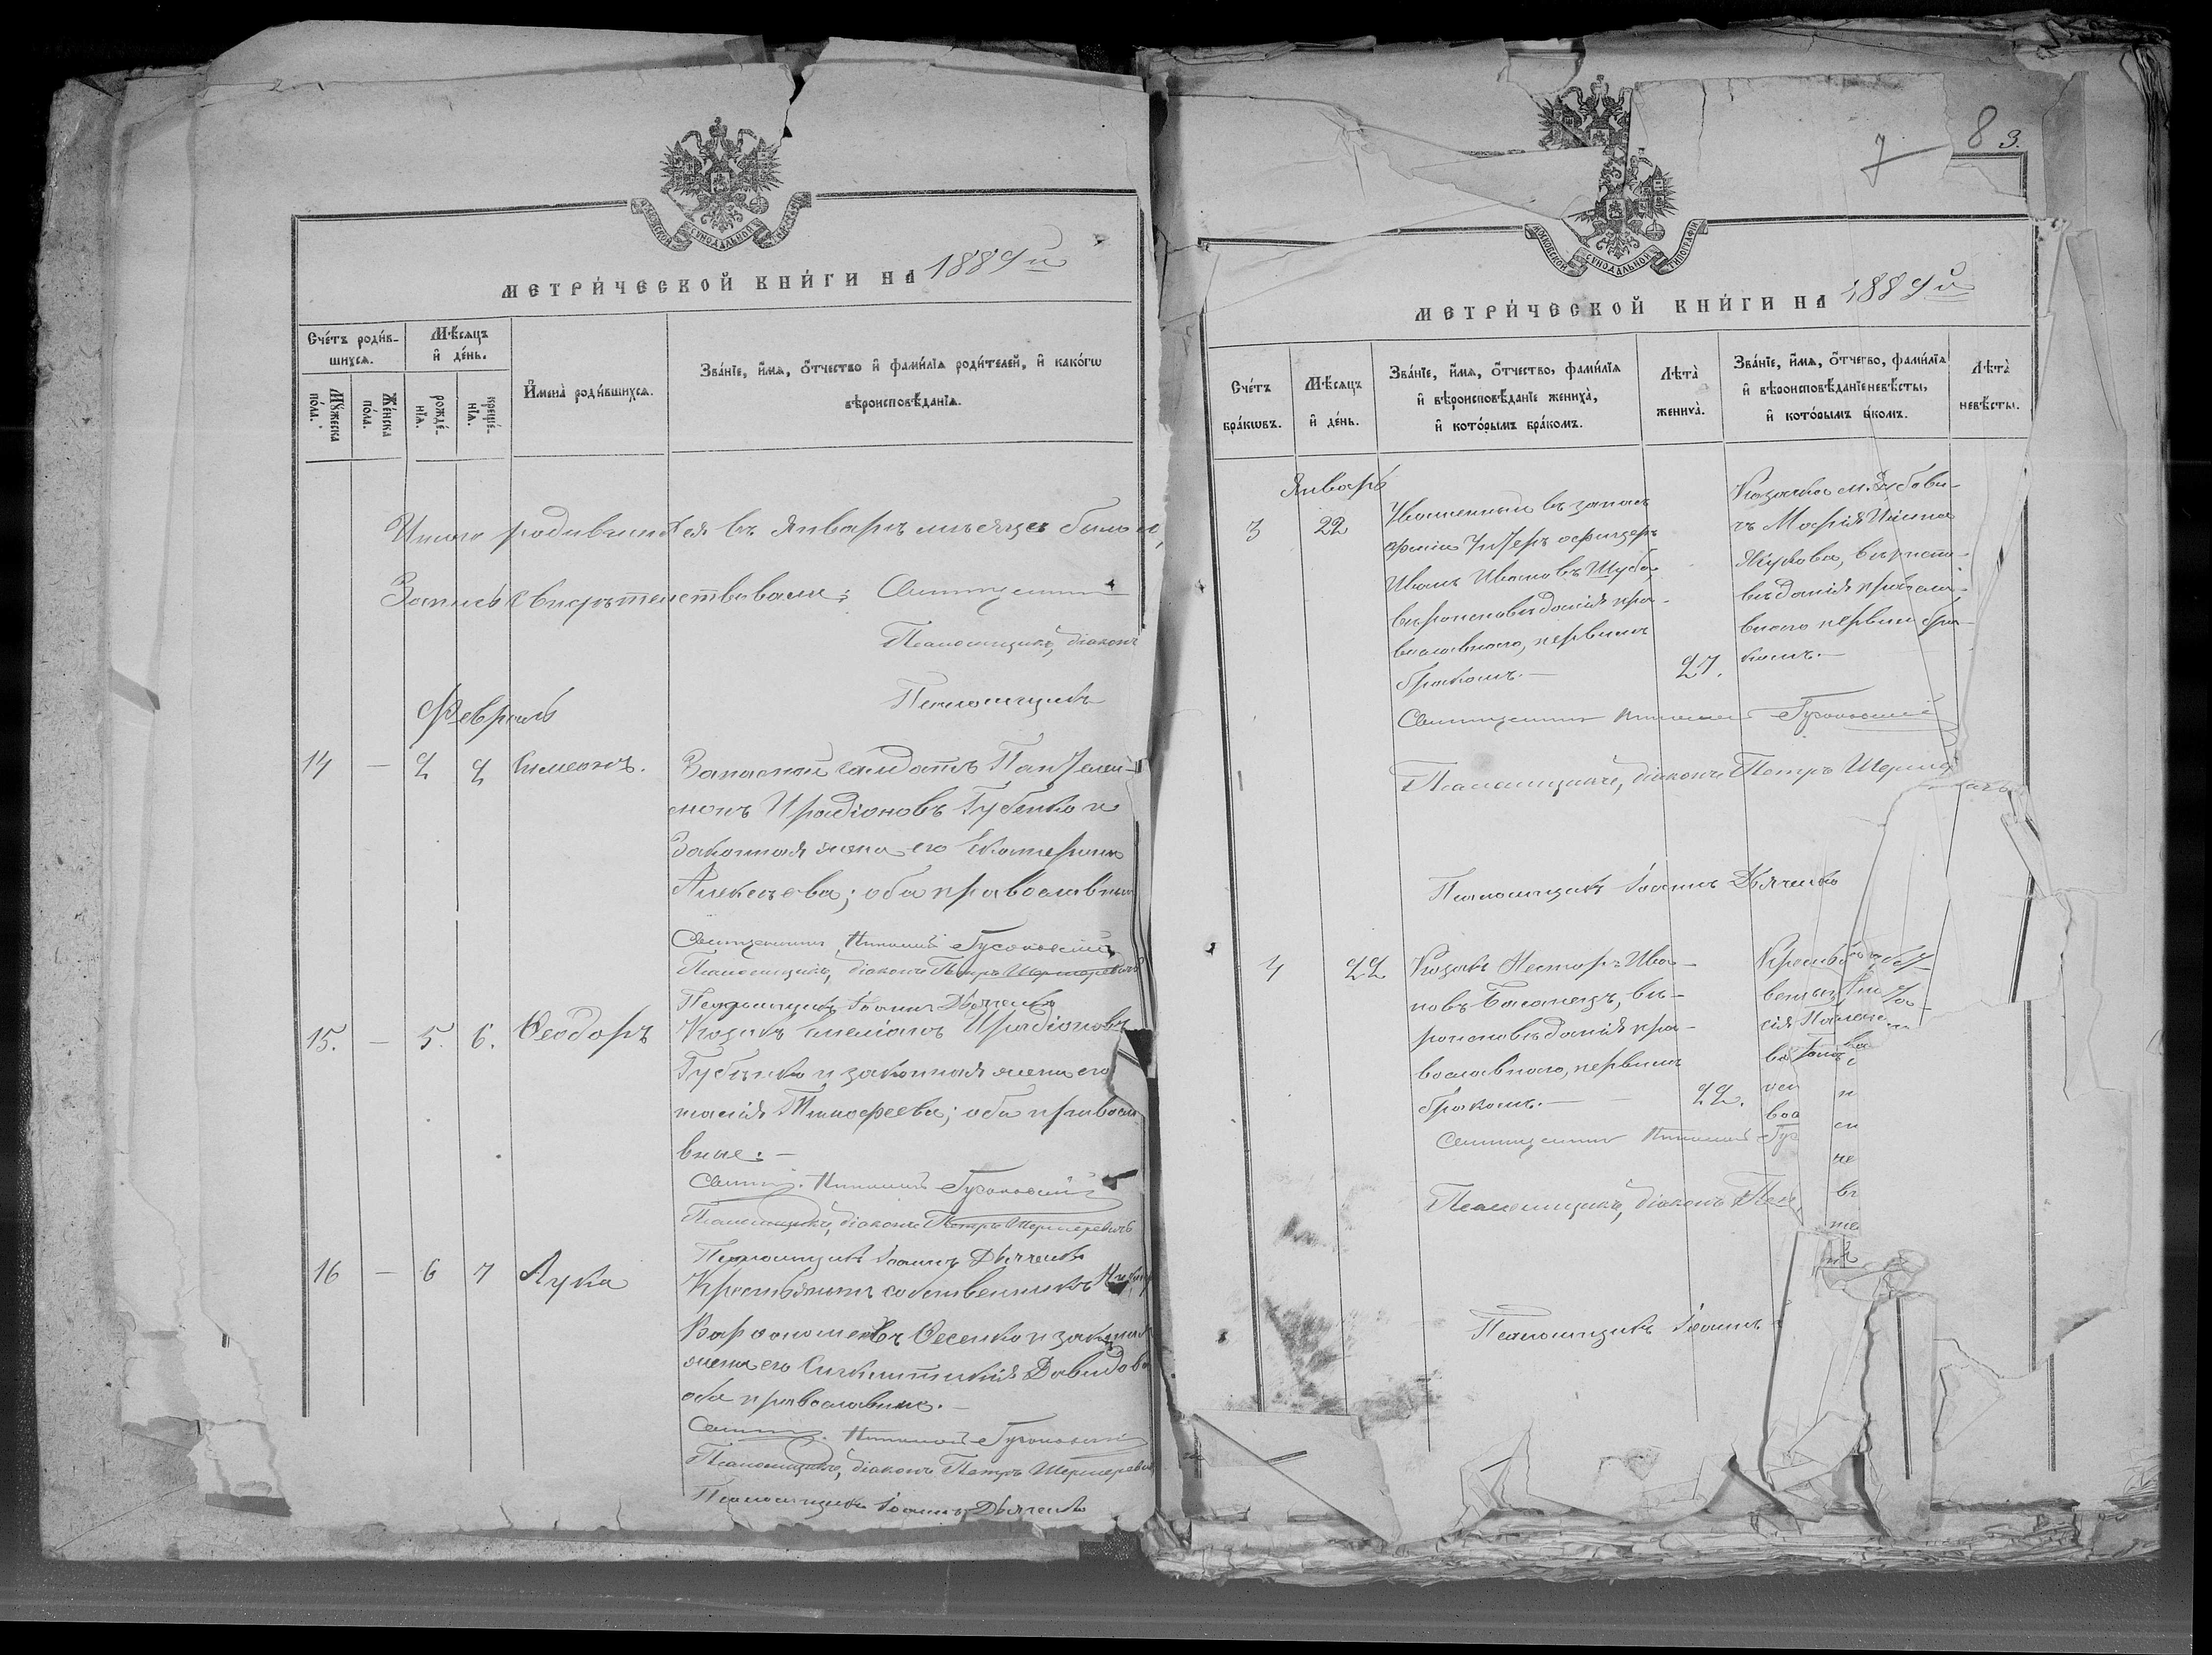 МОСКОВСКОЙ СѴНОДАЛЬНОЙ ТИПОГРАФІИ
МЕТРИ́ЧЕСКОЙ КНИ́ГИ НА 1889 й
Сче́тъ роди́в-
шихсѧ.
Мꙋ́жеска
по́ла.
Же́нска
по́ла.
Мѣ́сѧцъ
и҆ де́нь.
рожде́-
нїѧ.
креще́-
нїѧ.
И҆мена̀ роди́вшихсѧ.
Зва́нїе, и҆́мѧ, ѻ҆́тчество и҆ фами́лїѧ роди́телей, и҆ како́гѡ
вѣроисповѣ́данїѧ.
Итого родившихся въ Январѣ мѣсяцѣ было м,
Запись свидѣтельствовали: Священникъ
Псаломщикъ, діаконъ
Псаломщикъ
Февраль
14 — 2 2 Симеонъ. Запасной солдатъ Пантелей-
монъ Иродіоновъ Губенко и
Законная жена его Екатерина
Алексѣева; оба православные
Священникъ Николай Гусаковскій
Псаломщикъ, діаконъ Петръ Шермеревичъ
Псаломщикъ Іоаннъ Дьяченко
15. — 5. 6. Ѳеодоръ Козакъ Емеліанъ Иродіоновъ
Губенко и законная жена его
Тимофеева; оба православ
ные. —
Священ. Николай Гусаковскій
Псаломщикъ, діаконъ Петръ Шермеревичъ
Псаломщикъ Іоаннъ Дьяченко
16 — 6 7 Лука Крестьянинъ собственникъ
Варѳоломеевъ Ѳесенко и законная
жена его Синклитикія Давидова
оба православные. —
Священ. Николай Гусаковскій
Псаломщикъ, діаконъ Петръ Шермеревичъ
Псаломщикъ Іоаннъ Дьяченко
7 8 3.
МОСКОВСКОЙ СѴНОДАЛЬНОЙ ТИПОГРАФІИ
МЕТРИ́ЧЕСКОЙ КНИ́ГИ НА 1889 й
Сче́тъ
бра́кѡвъ.
Мѣ́сѧцъ
и҆ де́нь.
Зва́нїе, и҆́мѧ, ѻ҆́тчество, фами́лїѧ
и҆ вѣроисповѣ́данїе жениха̀,
и҆ кото́рымъ бра́комъ.
Лѣ́та̀
жениха̀.
Зва́нїе, и҆́мѧ, ѻ҆́тчество, фами́лїѧ
и҆ вѣроисповѣ́данїе невѣ́сты,
и҆ кото́рымъ бра́комъ.
Лѣ́та̀
невѣ́сты.
Январь
3 22 Уволенный въ запасъ
арміи Унтеръ офицеръ
Иванъ Ивановъ Шуба,
вѣроисповѣданія пра-
вославнаго, первымъ
бракомъ. — 27.
Козачка м.
Марія
Жукова, вѣроиспо-
вѣданія православ-
наго первымъ бра-
комъ. —
Священникъ Николай Гусаковскій
Псаломщикъ, діаконъ Петръ
Псаломщикъ Іоаннъ Дьяченко
4 22 Козакъ Несторъ Ива-
новъ Баланецъ, вѣ-
роисповѣданія пра-
вославнаго, первымъ
бракомъ. — 22.
Священникъ Николай Гус
Псаломщикъ, діаконъ Пет
Псаломщикъ Іоаннъ